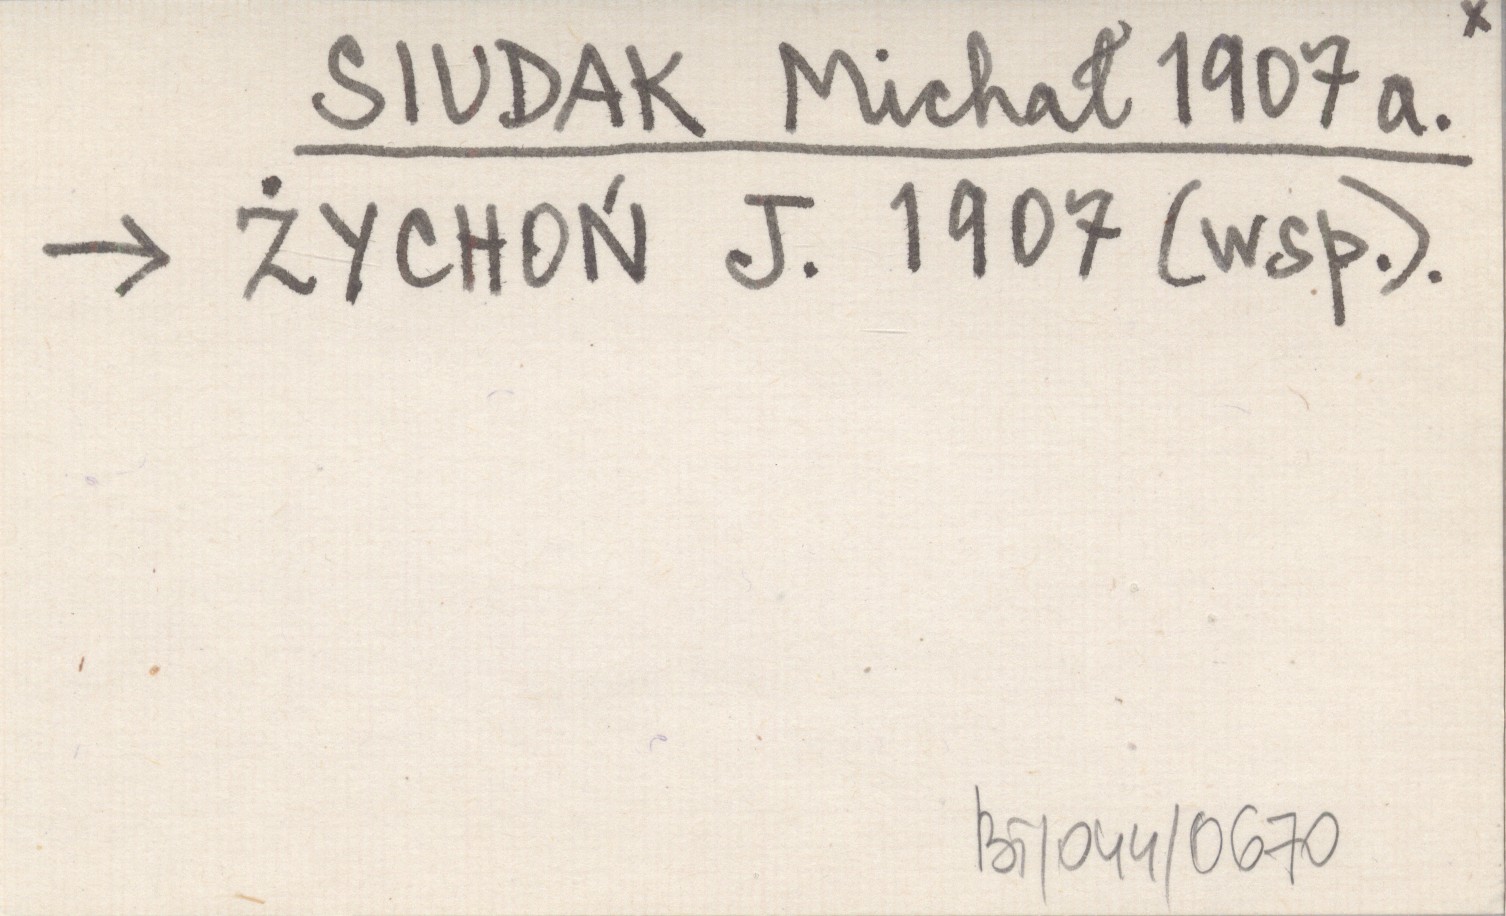 x
SIUDAK Michał 1907 a.
→ ŻYCHOŃ J. 1907 (wsp.).
/044/0670